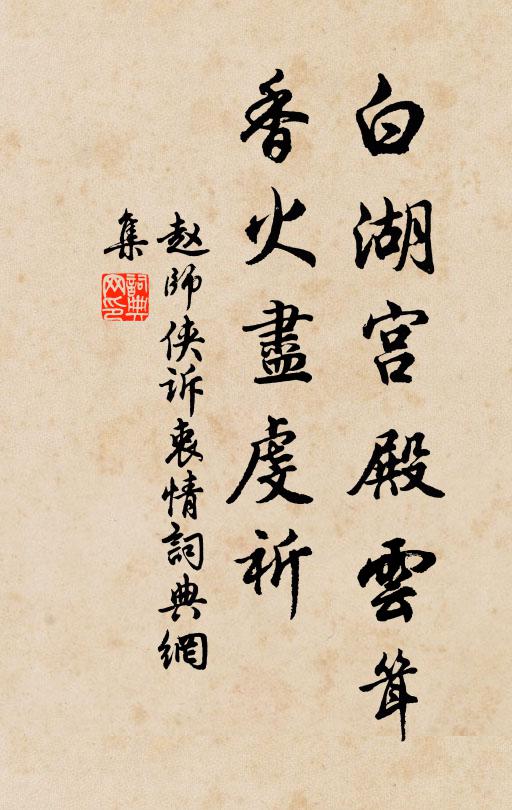 白湖宫殿雲聳
香火盡虔祈
赵師侠诉衷情詞典網
集
詞典
网印